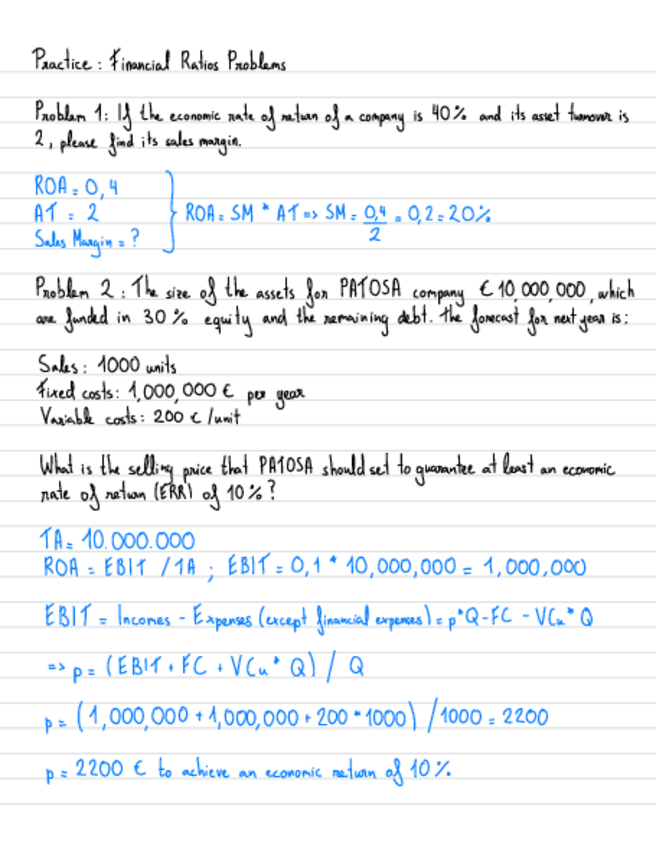 Practice : Financial Ratios Problems
Problem 1: If the economic rate of return of a company is 40% and its asset turnover is
2, please find its sales margin.
ROA = 0,4
AT = 2
Sales Margin = ?
ROA = SM * AT => SM = 0,4 / 2 = 0,2 = 20%
Problem 2 : The size of the assets for PATOSA company € 10,000,000, which
are funded in 30% equity and the remaining debt. The forecast for next year is:
Sales: 1000 units
Fixed costs: 1,000,000 € per year
Variable costs: 200 € /unit
What is the selling price that PATOSA should set to guarantee at least an economic
rate of return (ERR) of 10%?
TA = 10.000.000
ROA = EBIT / TA ; EBIT = 0,1 * 10,000,000 = 1,000,000
EBIT = Incomes - Expenses (except financial expenses) = p*Q-FC - VCu* Q
=> p = (EBIT + FC + VCu* Q) / Q
p = (1,000,000 + 1,000,000 + 200 * 1000) / 1000 = 2200
p = 2200 € to achieve an economic return of 10%